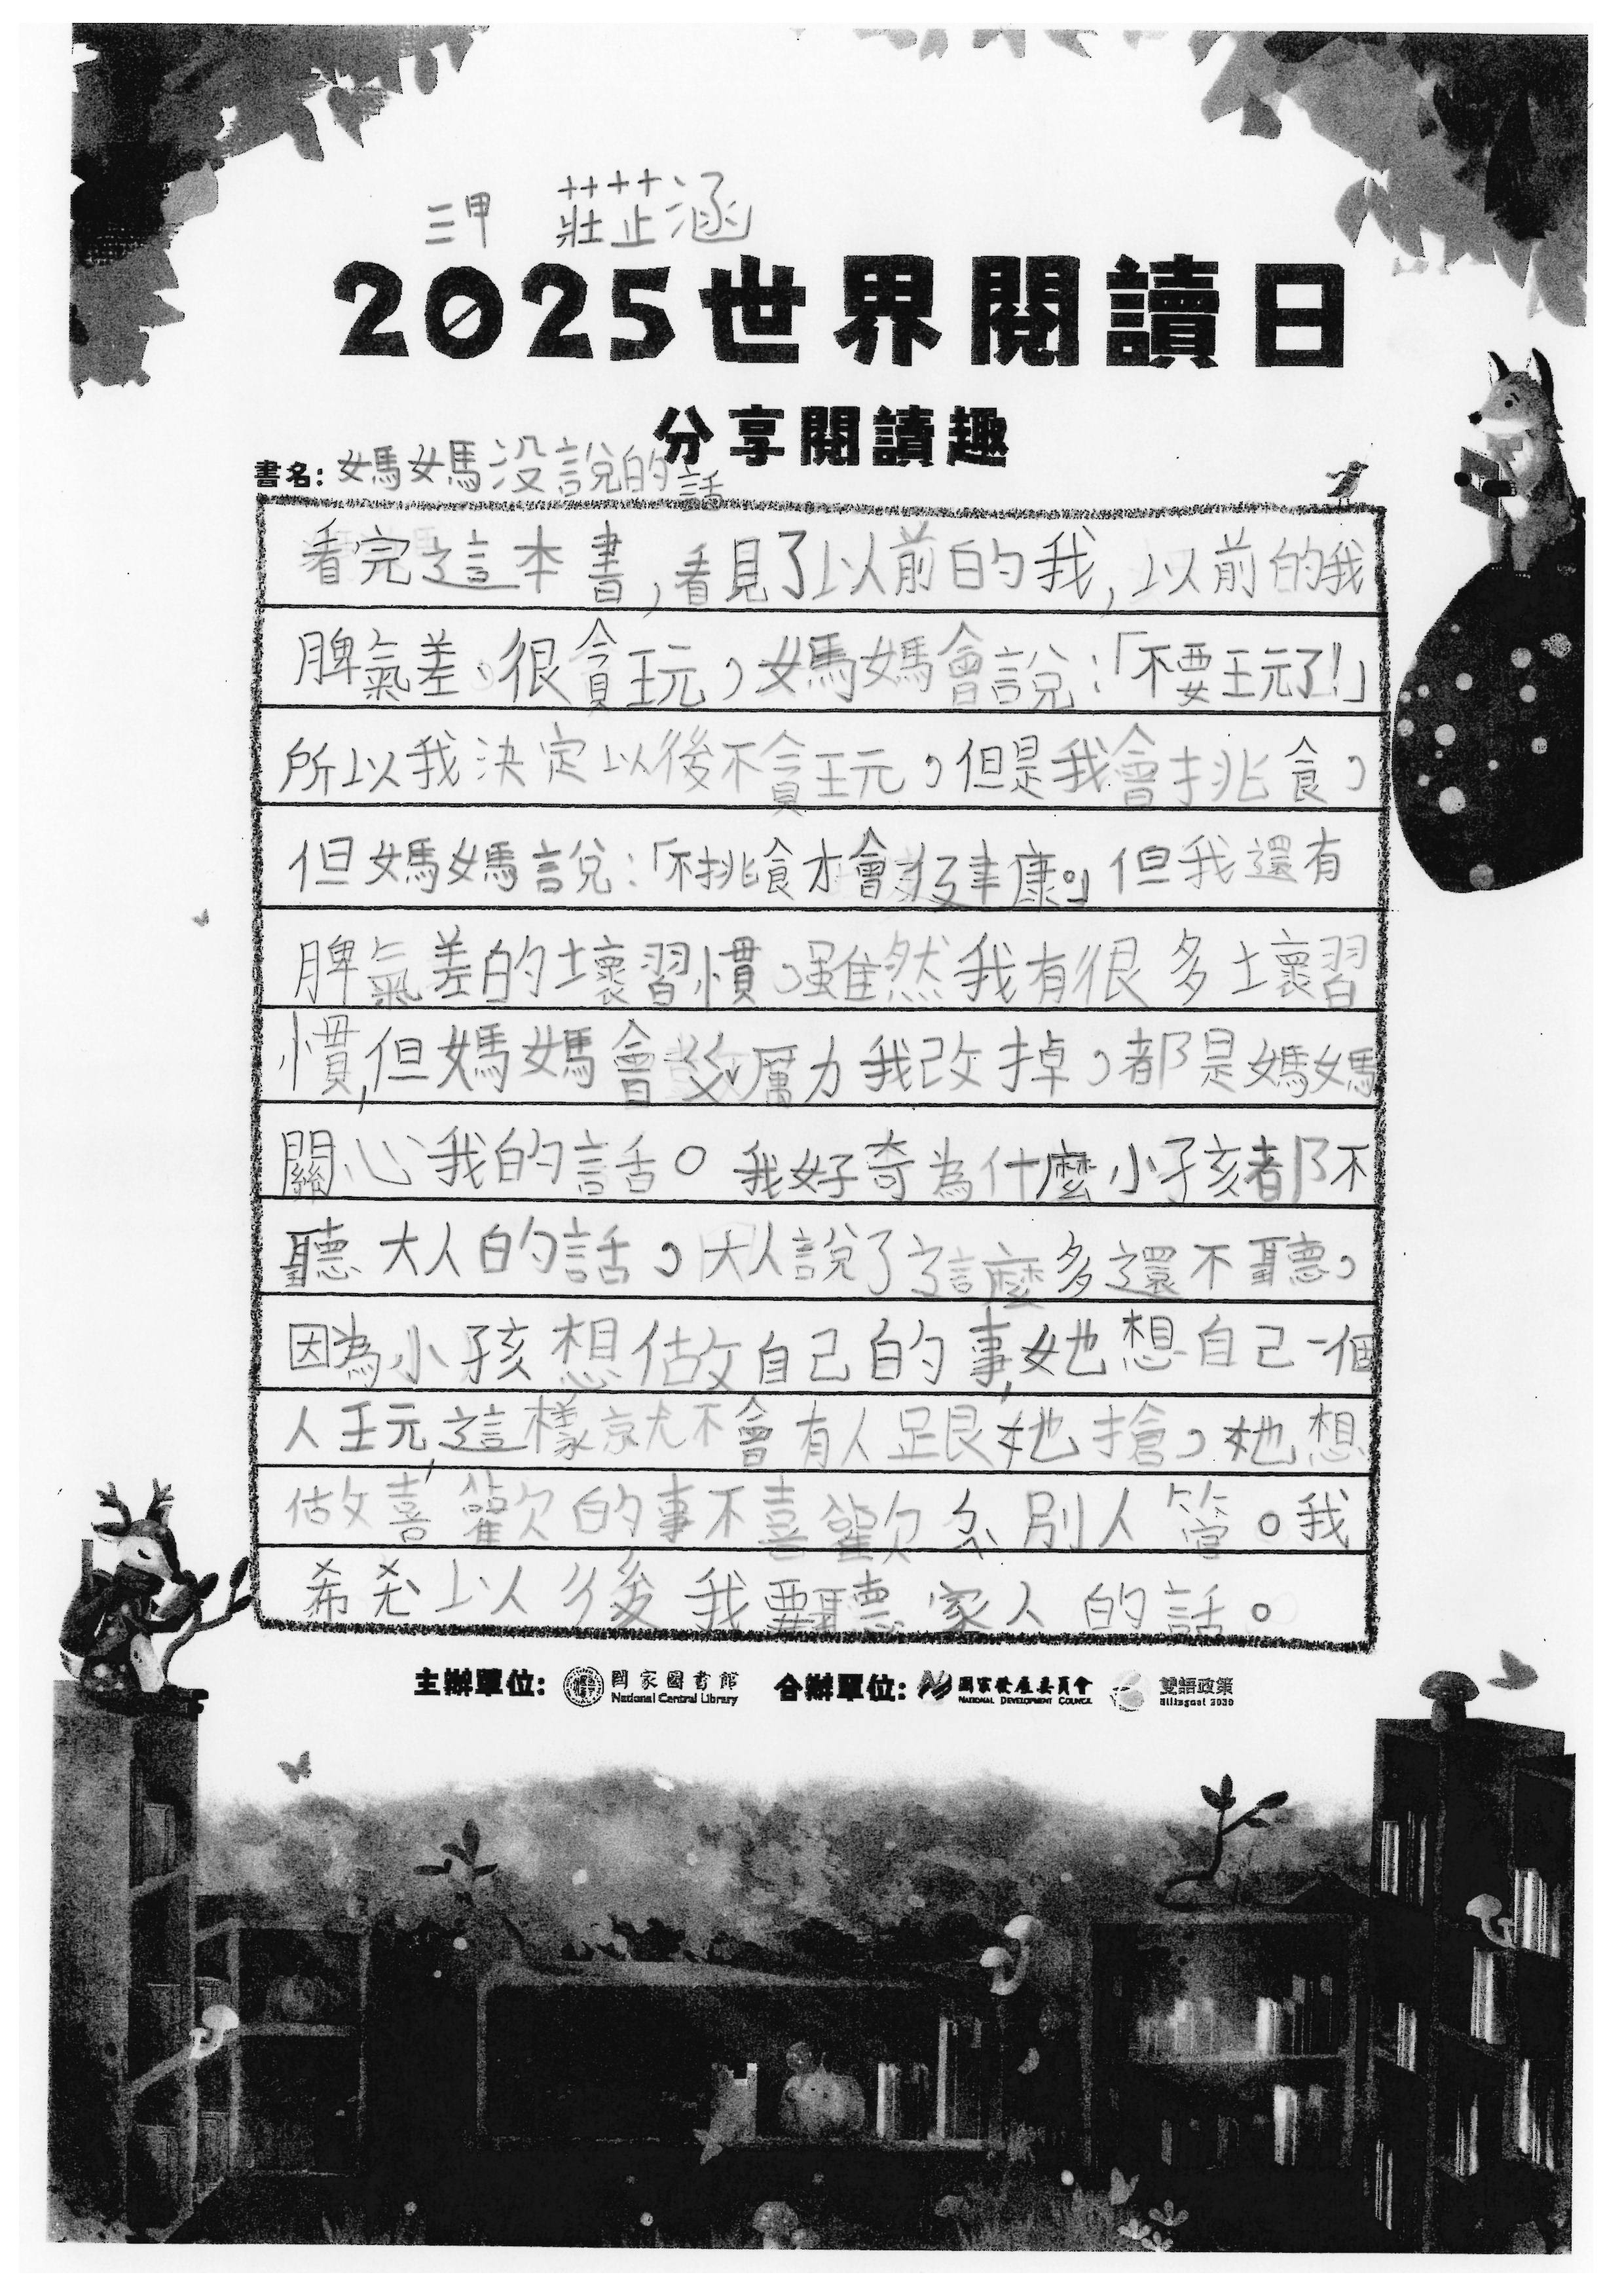 三甲 莊芷涵
2025世界閱讀日
分享閱讀趣
書名：媽媽沒說的話
看完這本書，看見了以前的我，以前的我
脾氣差。很貪玩，媽媽會說：「不要玩了!」
所以我決定以後不貪玩，但是我會挑食，
但媽媽說：「不挑食才會健康。」但我還有
脾氣差的壞習慣。雖然我有很多壞習
慣，但媽媽會 力我改掉，都是媽媽
關心我的話。我好奇為什麼小孩都不
聽大人的話，大人說了這麼多還不聽，
因為小孩想做自己的事，她想自己一個
人玩，這樣就不會有人跟她搶，她想
做喜歡的事不喜歡 別人管。我
希 以後我要聽家人的話。
主辦單位：國家圖書館 National Central Library 合辦單位：國家發展委員會 NATIONAL DEVELOPMENT COUNCIL 雙語政策 Bilingual 2030